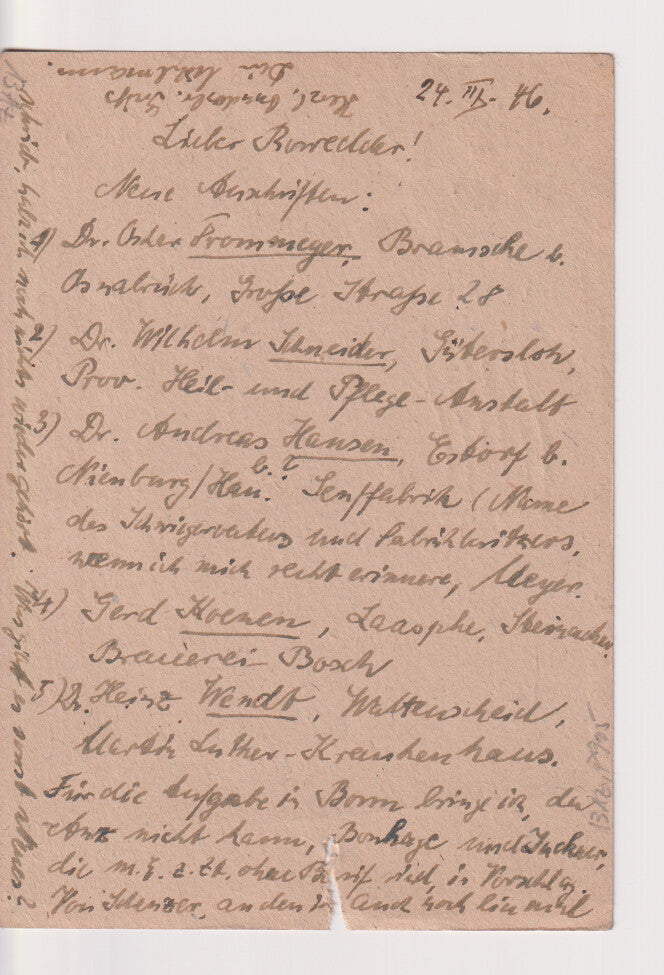 24. III. 46.
Lieber Rowedder!
Neue Anschriften:
1) Dr. Oskar Frommeyer, Bramsche b.
Osnabrück, Große Straße 28
2) Dr. Wilhelm Schneider, Gütersloh,
Prov. Heil- und Pflege-Anstalt
3) Dr. Andreas Hansen, Estorf b.
Nienburg/Han. Senffabrik (Name
des Schwiegervaters und Fabrikbesitzers,
wenn ich mich recht erinnere, Meyer.
4) Gerd Koenen, Laasphe,
Brauerei Bosch
5) Dr. Heinz Wendt, Wattenscheid,
Martin Luther-Krankenhaus.
Für die Aufgabe in Bonn bringe ich, da
nicht kann, Bonhage und
die m. E. z. Zt. ohne sind, in Vorschlag.
Von an den ich auch noch einmal
schrieb, habe ich noch nichts wieder gehört. Was gibt es sonst Neues?
Herzl. Grüße
Dein